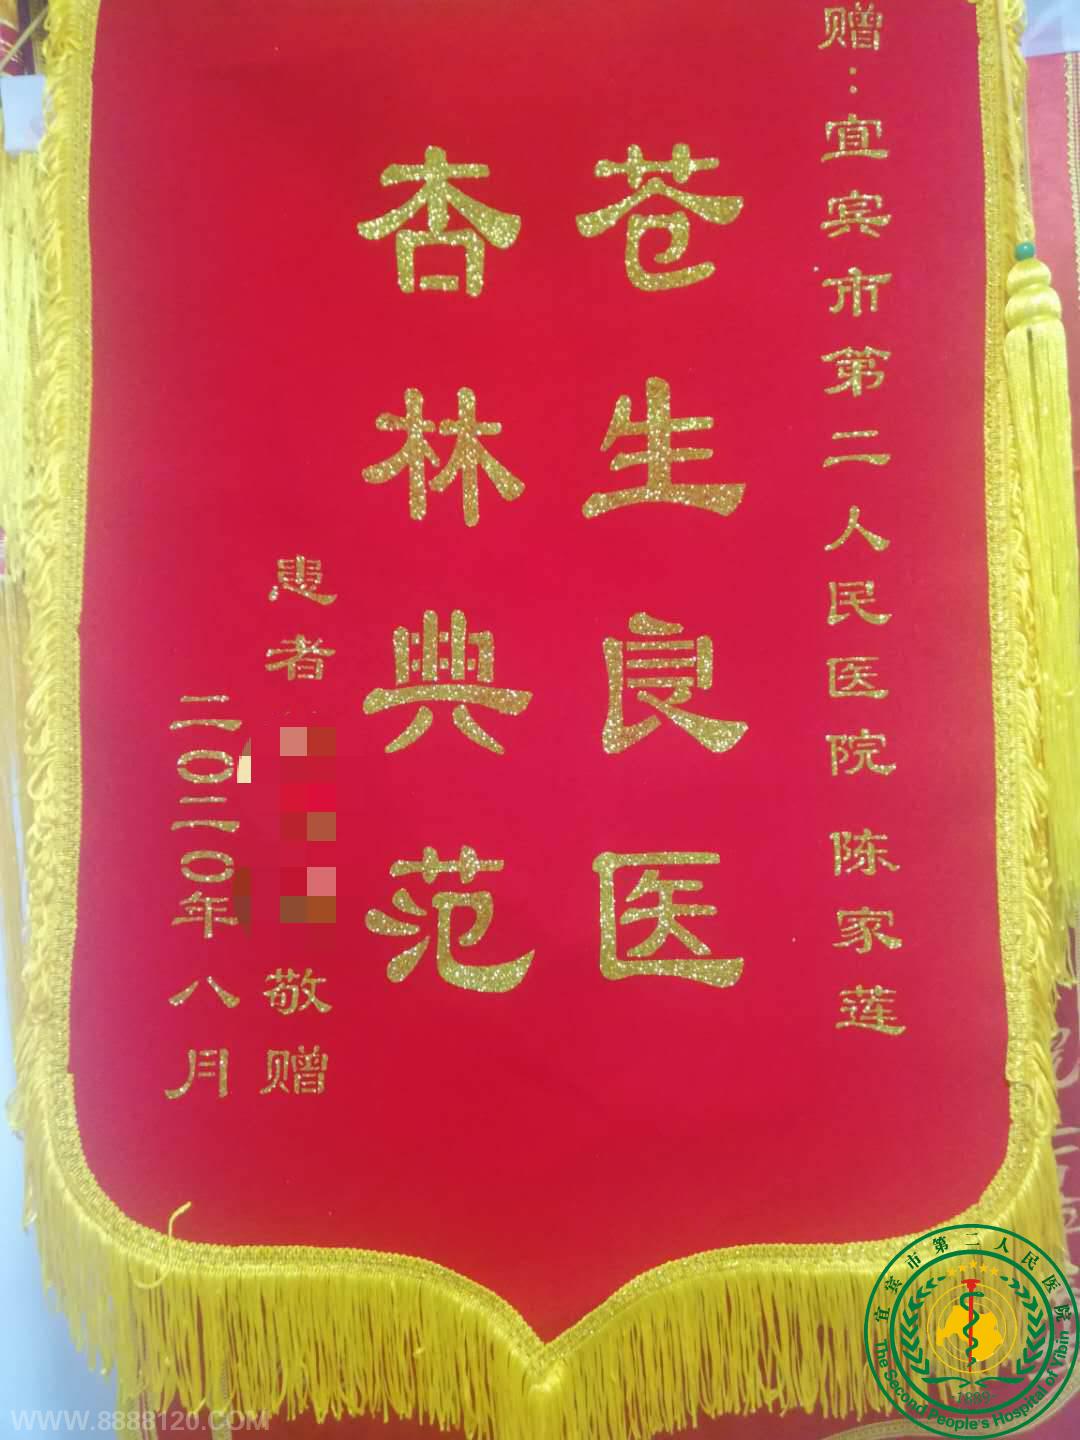 赠：宜宾市第二人民医院 陈家莲
苍生良医
杏林典范
患者
敬赠
二〇二〇年八月
宜宾市第二人民医院
·1889·
The Second People's Hospital of Yibin
WWW.8888120.COM